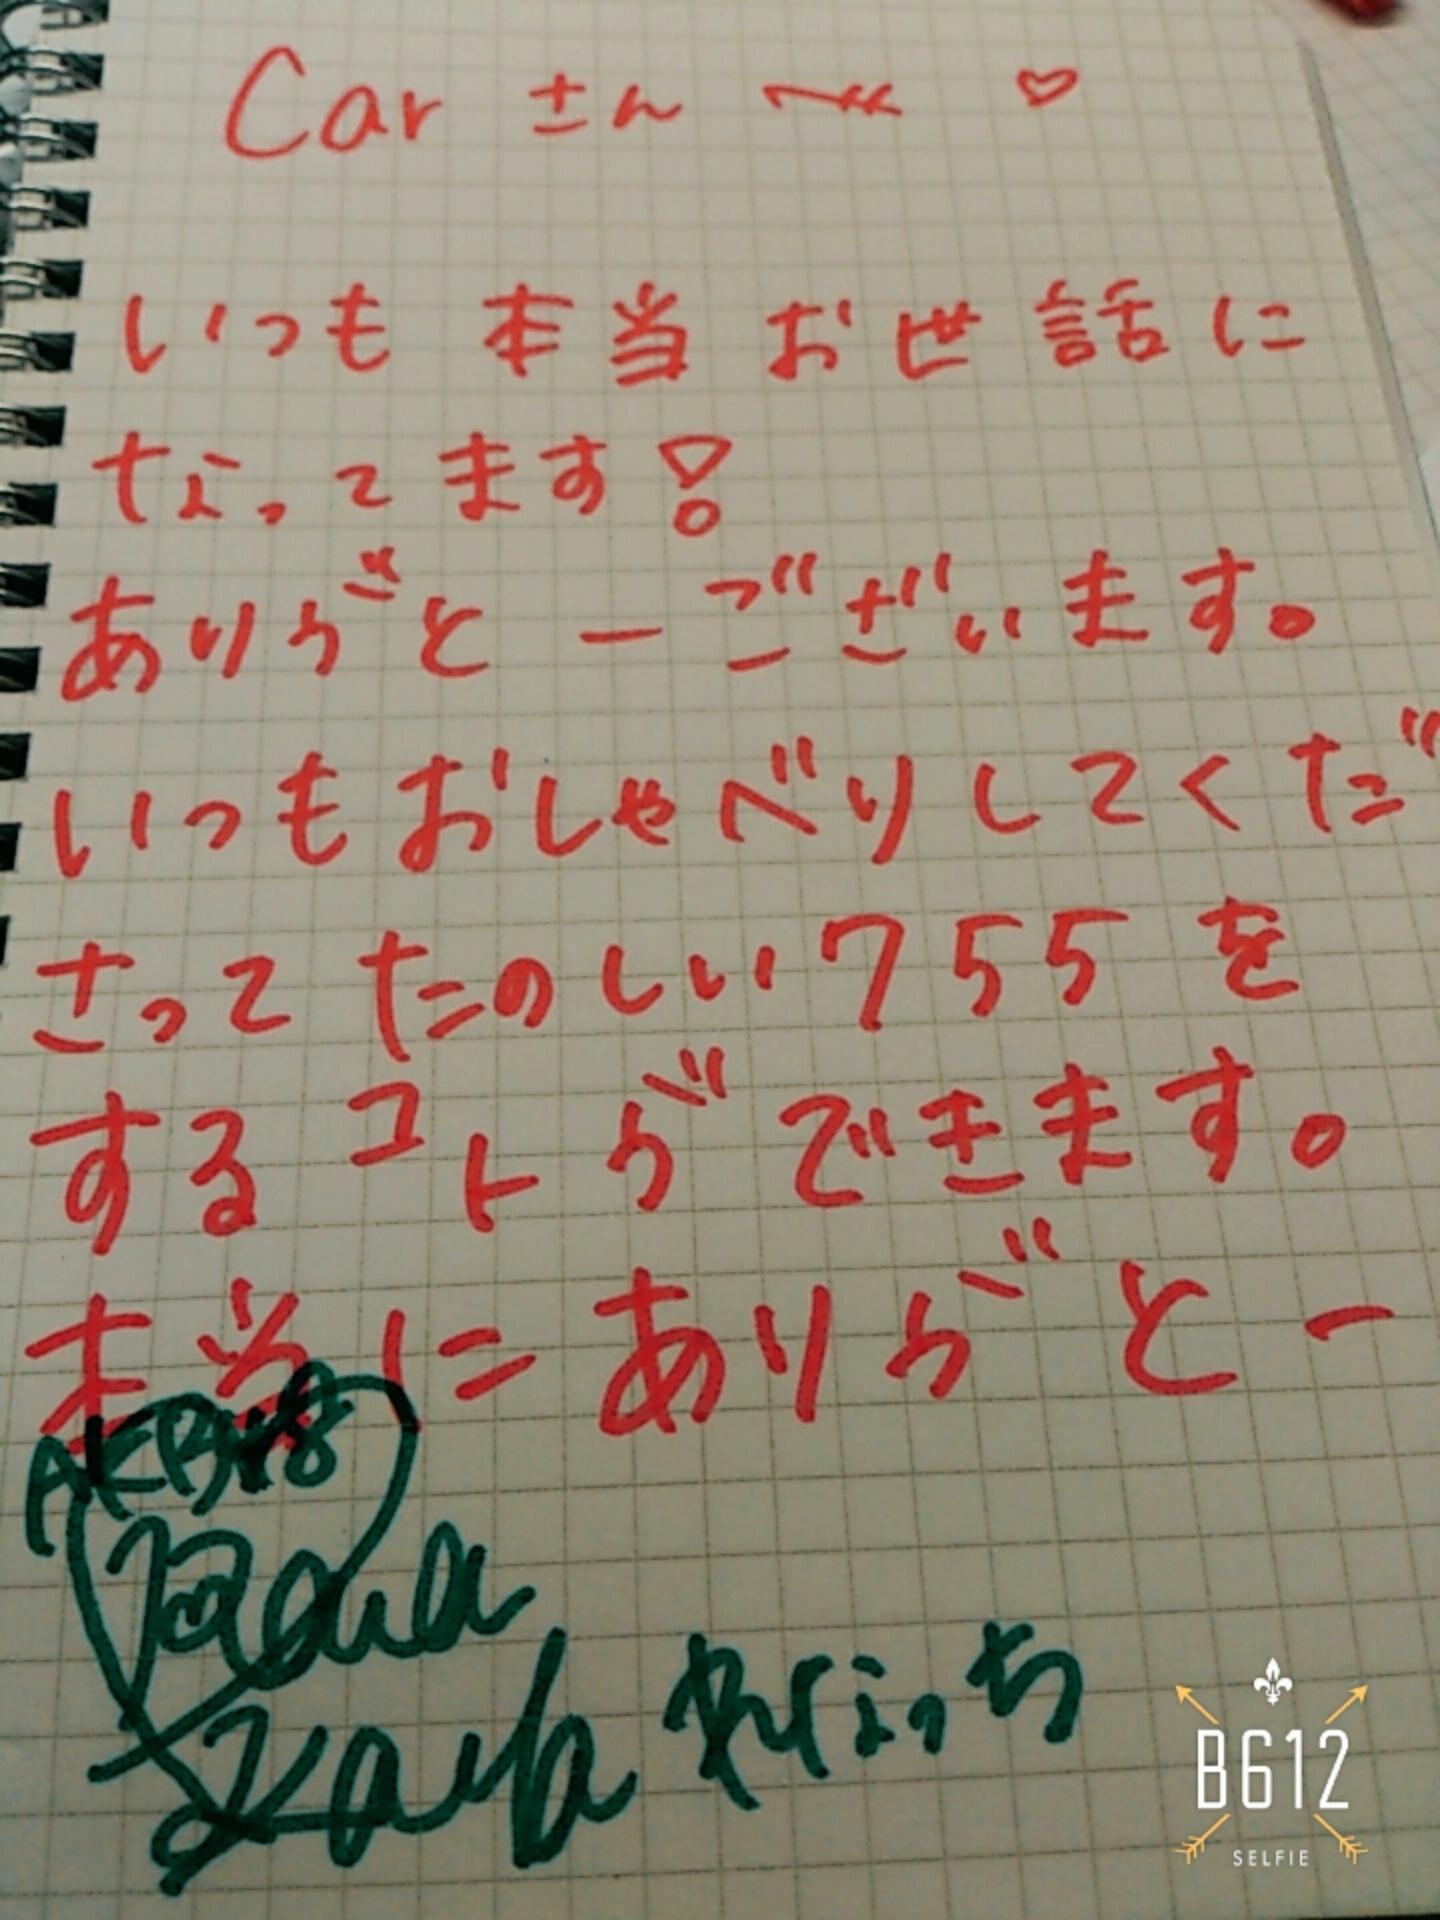 Carさんへ ♡
いつも本当お世話に
なってます!
ありがとーございます。
いつもおしゃべりしてくだ
さってたのしい755を
するコトができます。
本当にありがとー
AKB48
なっち
B612
SELFIE